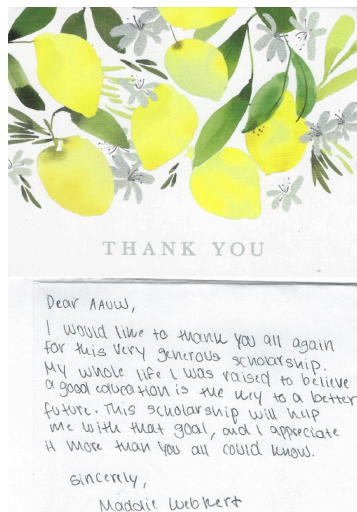 THANK YOU
Dear AAUW,
I would like to thank you all again
for this very generous scholarship.
My whole life I was raised to believe
a good education is the key to a better
future. This scholarship will help
me with that goal, and I appreciate
it more than you all could know.
sincerely,
Maddie Webkert